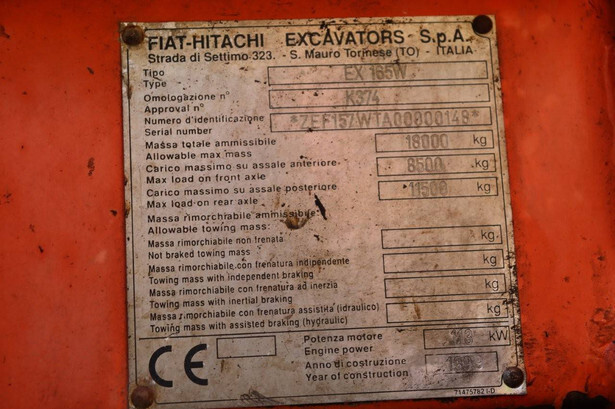 FIAT-HITACHI EXCAVATORS S.p.A.
Strada di Settimo 323. - S. Mauro Torinese (TO) - ITALIA
Tipo
Type
EX 165W
Omologazione n°
Approval n°
K374
Numero d'identificazione
Serial number
Massa totale ammissibile
Allowable max mass
18000 kg
Carico massimo su assale anteriore
Max load on front axle
8500 kg
Carico massimo su assale posteriore
Max load on rear axle
11500 kg
Massa rimorchiabile ammissibile:
Allowable towing mass:
Massa rimorchiabile non frenata
Not braked towing mass
kg.
Massa rimorchiabile con frenatura indipendente
Towing mass with independent braking
kg.
Massa rimorchiabile con frenatura ad inerzia
Towing mass with inertial braking
kg.
Massa rimorchiabile con frenatura assistita (idraulico)
Towing mass with assisted braking (hydraulic)
kg
CE
Potenza motore
Engine power
kW
Anno di costruzione
Year of construction